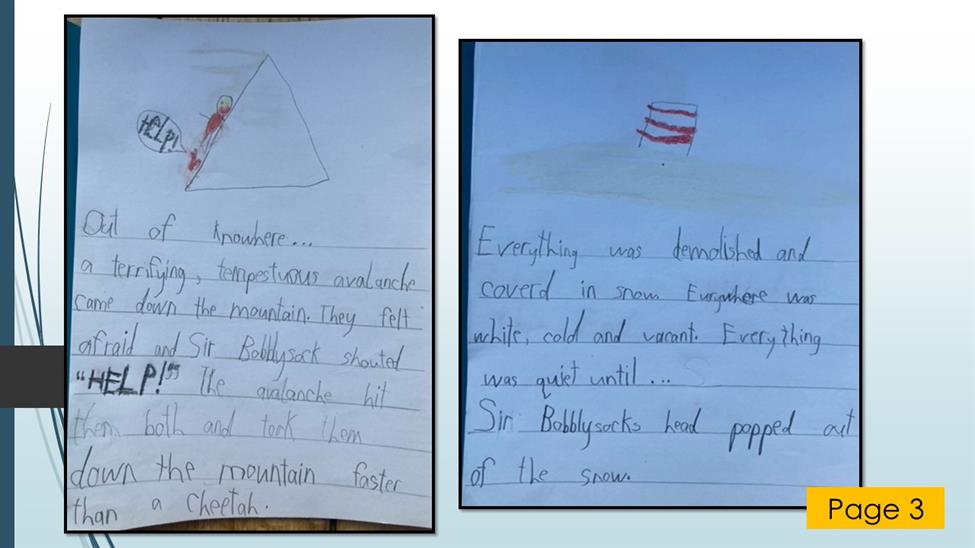 HELP!
Out of knowhere...
a terrifying, tempestuous avalanche
came down the mountain. They felt
afraid and Sir Bobblysock shouted
"HELP!" The avalanche hit
them both and took them
down the mountain faster
than a cheetah.
Everything was demolished and
coverd in snow. Eurywhere was
white, cold and vacant. Everything
was quiet until ...
Sir Bobblysocks head popped out
of the snow.
Page 3